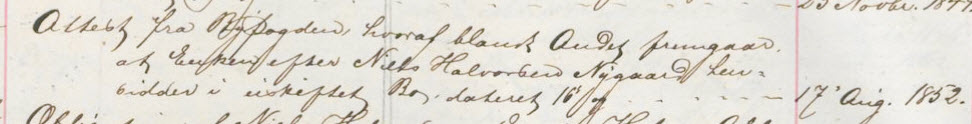 25 Novbr. 1847
Attest fra Byfogden, hvoraf blandt Andet fremgaar.
at Enken efter Niels Halvorsen Nygaard hen-
sidder i uskiftet Bo. dateret 16' og 17' Aug. 1852.